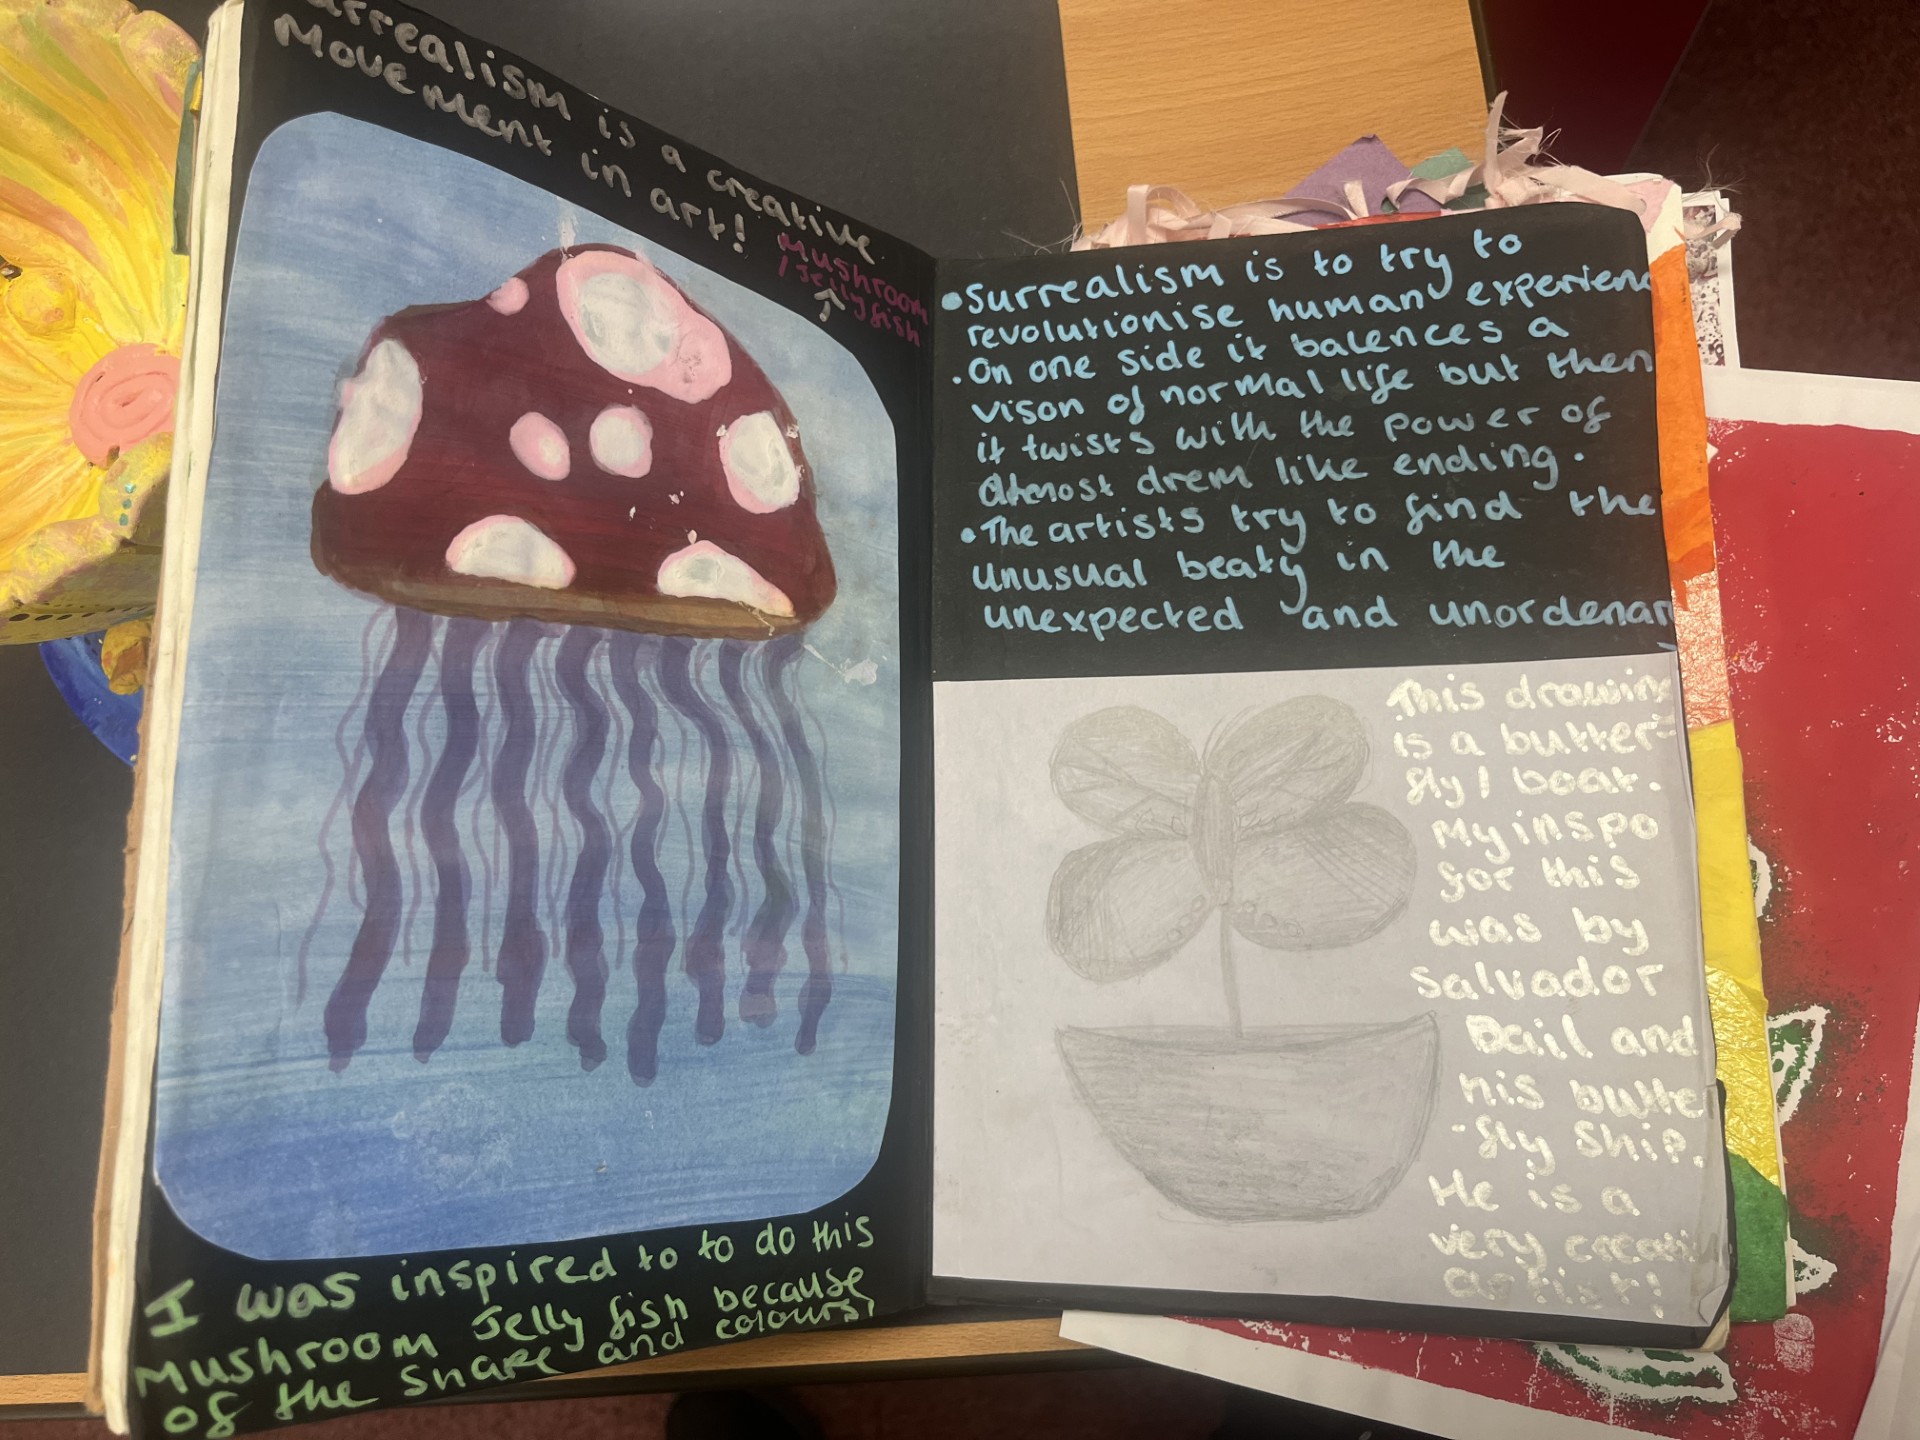 urrealism is a creative
Movement in art!
Mushroom
/ Jellyfish
I was inspired to to do this
Mushroom Jelly fish because
of the shape and colours!
• Surrealism is to try to
revolutionise human experienc
. On one side it balences a
vison of normal life but then
it twists with the power of
Atmost drem like ending.
• The artists try to find the
unusual beaty in the
unexpected and unordenar
This drawing
is a butter-
fly / boat.
My inspo
for this
was by
Salvador
Dail and
his butte
-fly ship.
He is a
very creati
artist!